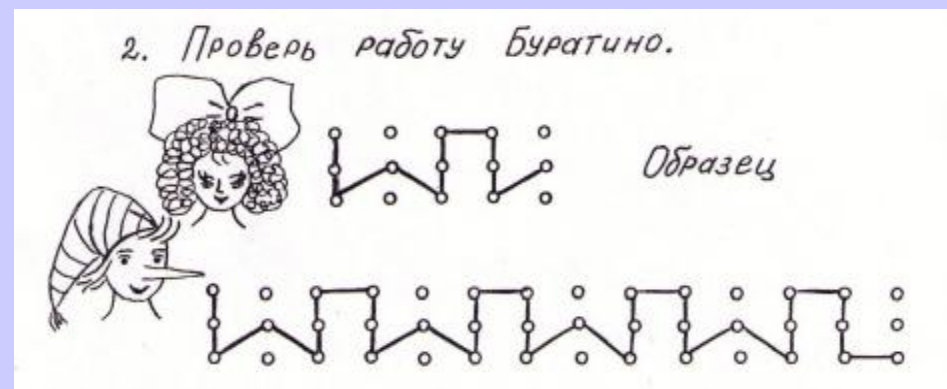 2. Проверь работу Буратино.
Образец